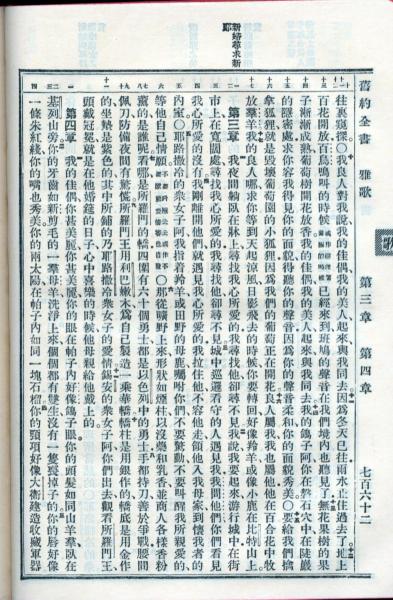 舊約全書 雅歌 第三章 第四章 七百六十二
新婦尋求新郎
往裏窺探〇我良人對我說我的佳偶我的美人起來與我同去因爲冬天已往雨水止住過去了地上
百花開放百鳥鳴叫的時候或作修理葡萄樹的時候已經來到班鳩的聲音在我們境內也聽見了無花果樹的果
子漸漸成熟葡萄樹開花放香我的佳偶我的美人起來與我同去我的鴿子阿你在磐石穴中在陡巖
的隱密處求你容我得見你的面貌得聽你的聲音因爲你的聲音柔和你的面貌秀美〇要給我們擒
拿狐狸就是毀壞葡萄園的小狐狸因爲我們的葡萄正在開花良人屬我我也屬他他在百合花中牧
放羣羊我的良人哪求你等到天起涼風日影飛去的時候你要轉回好像羚羊或像小鹿在比特山上
第三章 我夜間躺臥在牀上尋找我心所愛的我尋找他卻尋不見我說我要起來游行城中在街
市上在寬闊處尋找我心所愛的我尋找他卻尋不見城中巡邏看守的人遇見我我問他們你們看見
我心所愛的沒有我剛離開他們就遇見我心所愛的我拉住他不容他走領他入我母家到懷我者的
內室〇耶路撒冷的衆女子阿我指着羚羊或田野的母鹿囑咐你們不要驚動不要叫醒我所親愛的
等他自己情願〇那從曠野上來形狀如煙柱以沒藥和乳香並商人各樣香粉
薰的是誰呢看哪是所羅門的轎四圍有六十個勇士都是以色列中的勇士手都持刀善於爭戰腰間
佩刀防備夜間有驚慌所羅門王用利巴嫩木爲自己製造一乘華轎轎柱是用銀作的轎底是用金作
的坐墊是紫色的其中所鋪的乃耶路撒冷衆女子的愛情錫安的衆女子阿你們出去觀看所羅門王
頭戴冠冕就是在他婚筵的日子心中喜樂的時候他母親給他戴上的
第四章 我的佳偶你甚美麗你甚美麗你的眼在帕子內好像鴿子眼你的頭髮如同山羊羣臥在
基列山旁你的牙齒如新剪毛的一羣母羊洗淨上來個個都有雙生沒有一隻喪掉子的你的唇好像
一條朱紅綫你的嘴也秀美你的兩太陽在帕子內如同一塊石榴你的頸項好像大衛建造收藏軍器